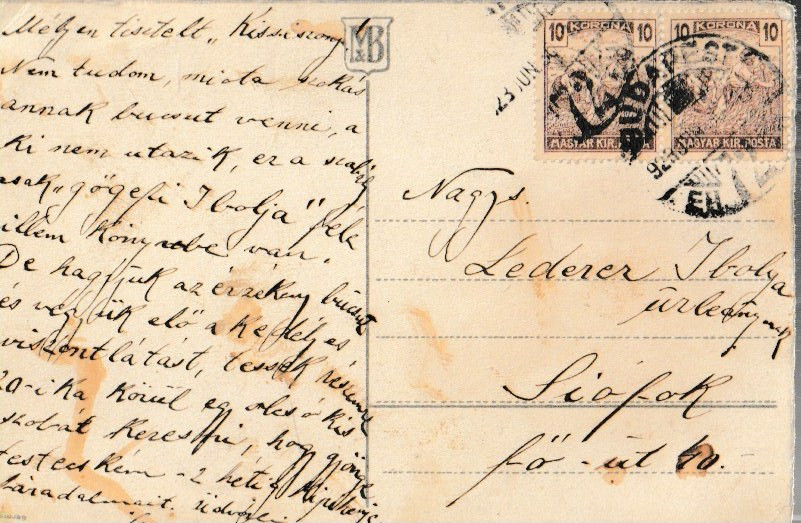 Mélyen tisztelt „Kissiszony"!
Nem tudom, mióta szokás
annak bucsut venni, a
ki nem utazik, ez a szabály
csak „gőgefi Ibolja" féle
illem könyvbe van.
De hagyjuk az érzékeny bucsut
és vegyük elő a kedélyes
viszontlátást, tessék részemre
20-ika körül egy olcsó kis
szobát keresni, hogy gyönge
testecském 2 hétig kipihenje
fáradalmait. Üdvözli
MB
10 KORONA 10
MAGYAR KIR. POSTA
10 KORONA 10
MAGYAR KIR. POSTA
BUDAPEST
23 JUN
Nagys.
Lederer Ibolya
úrleánynak
Siófok
fő-út 40.